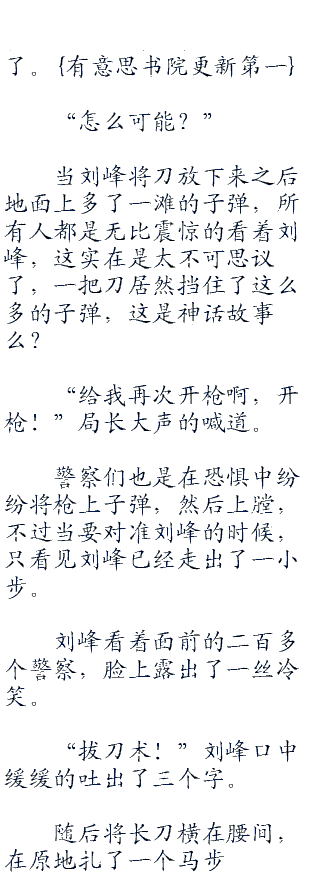 了。{有意思书院更新第一}
“怎么可能？”
当刘峰将刀放下来之后
地面上多了一滩的子弹，所
有人都是无比震惊的看着刘
峰，这实在是太不可思议
了，一把刀居然挡住了这么
多的子弹，这是神话故事
么？
“给我再次开枪啊，开
枪！”局长大声的喊道。
警察们也是在恐惧中纷
纷将枪上子弹，然后上膛，
不过当要对准刘峰的时候，
只看见刘峰已经走出了一小
步。
刘峰看着面前的二百多
个警察，脸上露出了一丝冷
笑。
“拔刀术！”刘峰口中
缓缓的吐出了三个字。
随后将长刀横在腰间，
在原地扎了一个马步